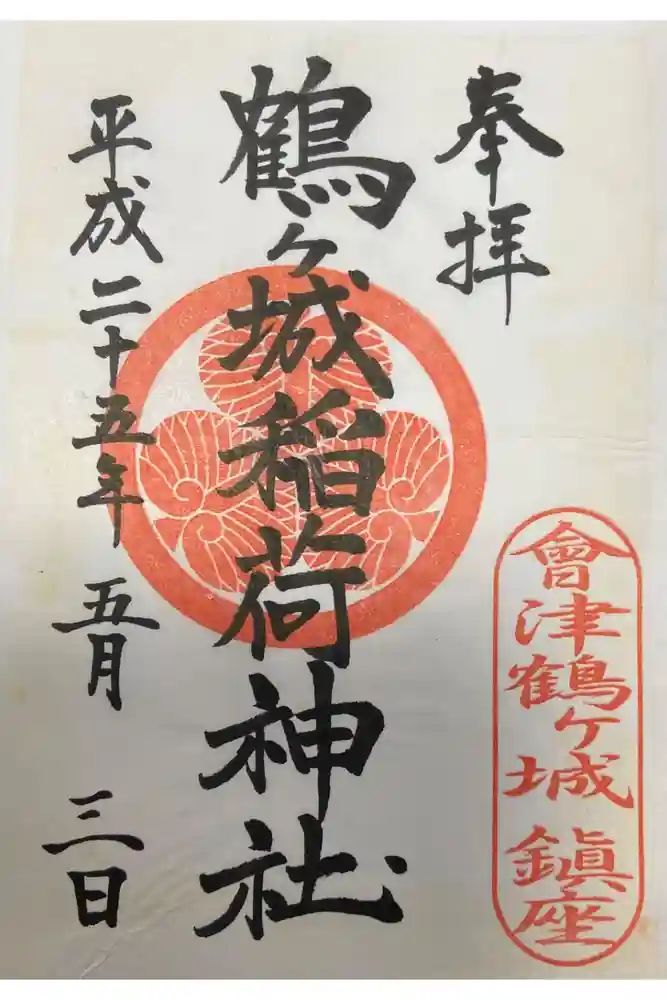 奉拝
會津鶴ヶ城鎮座
鶴ヶ城稲荷神社
平成二十五年五月三日